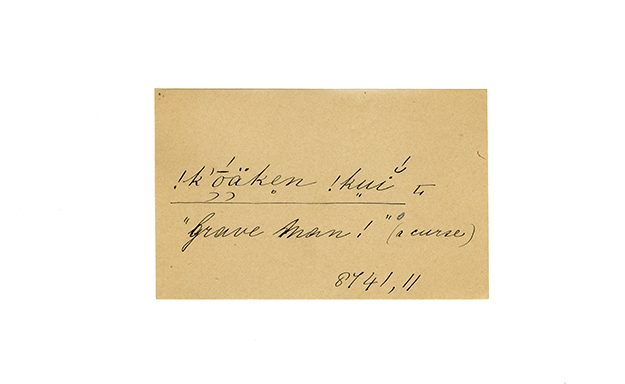 !k'ṓä̤ken !kuḯ
"Grave Man!" (a curse)
8741, 11